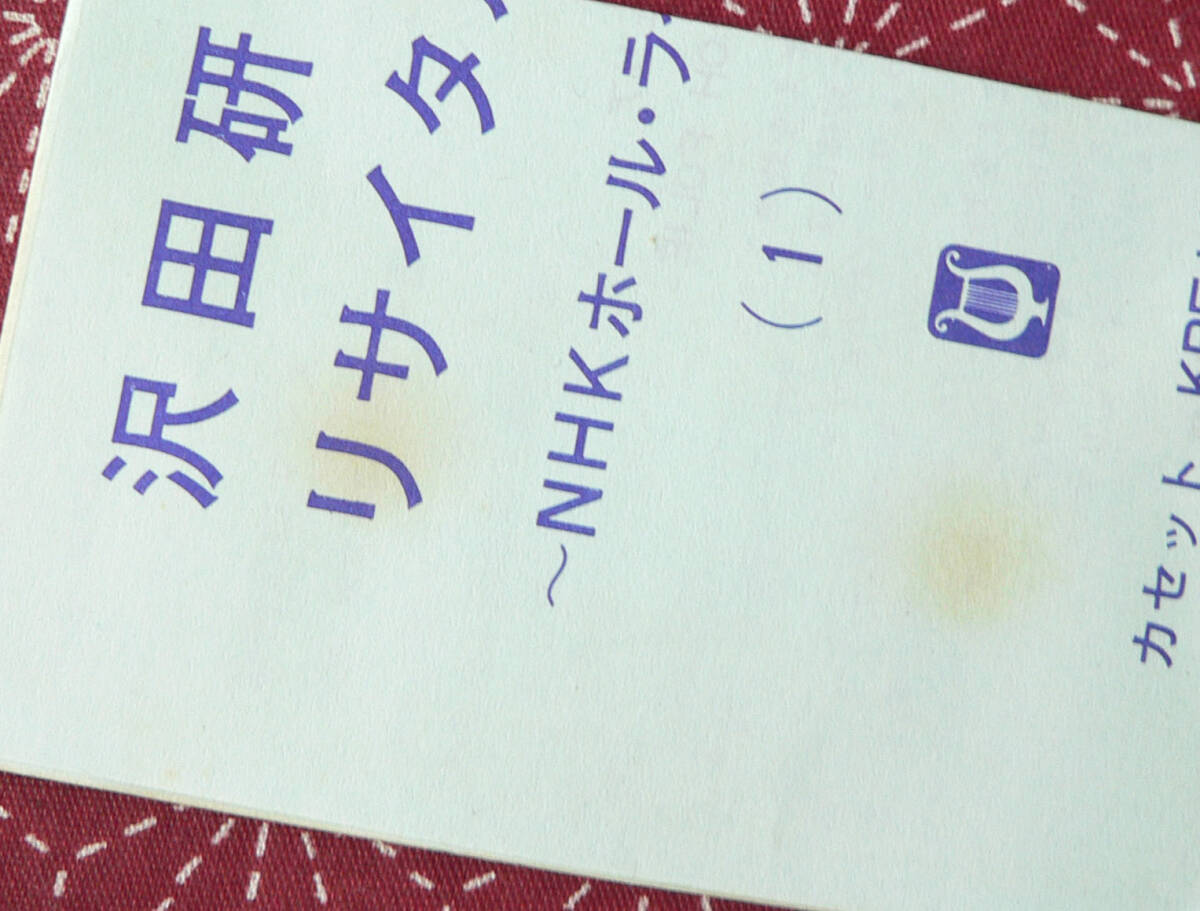 沢田研
リサイタ
～NHKホール・ラ
（1）
カセット